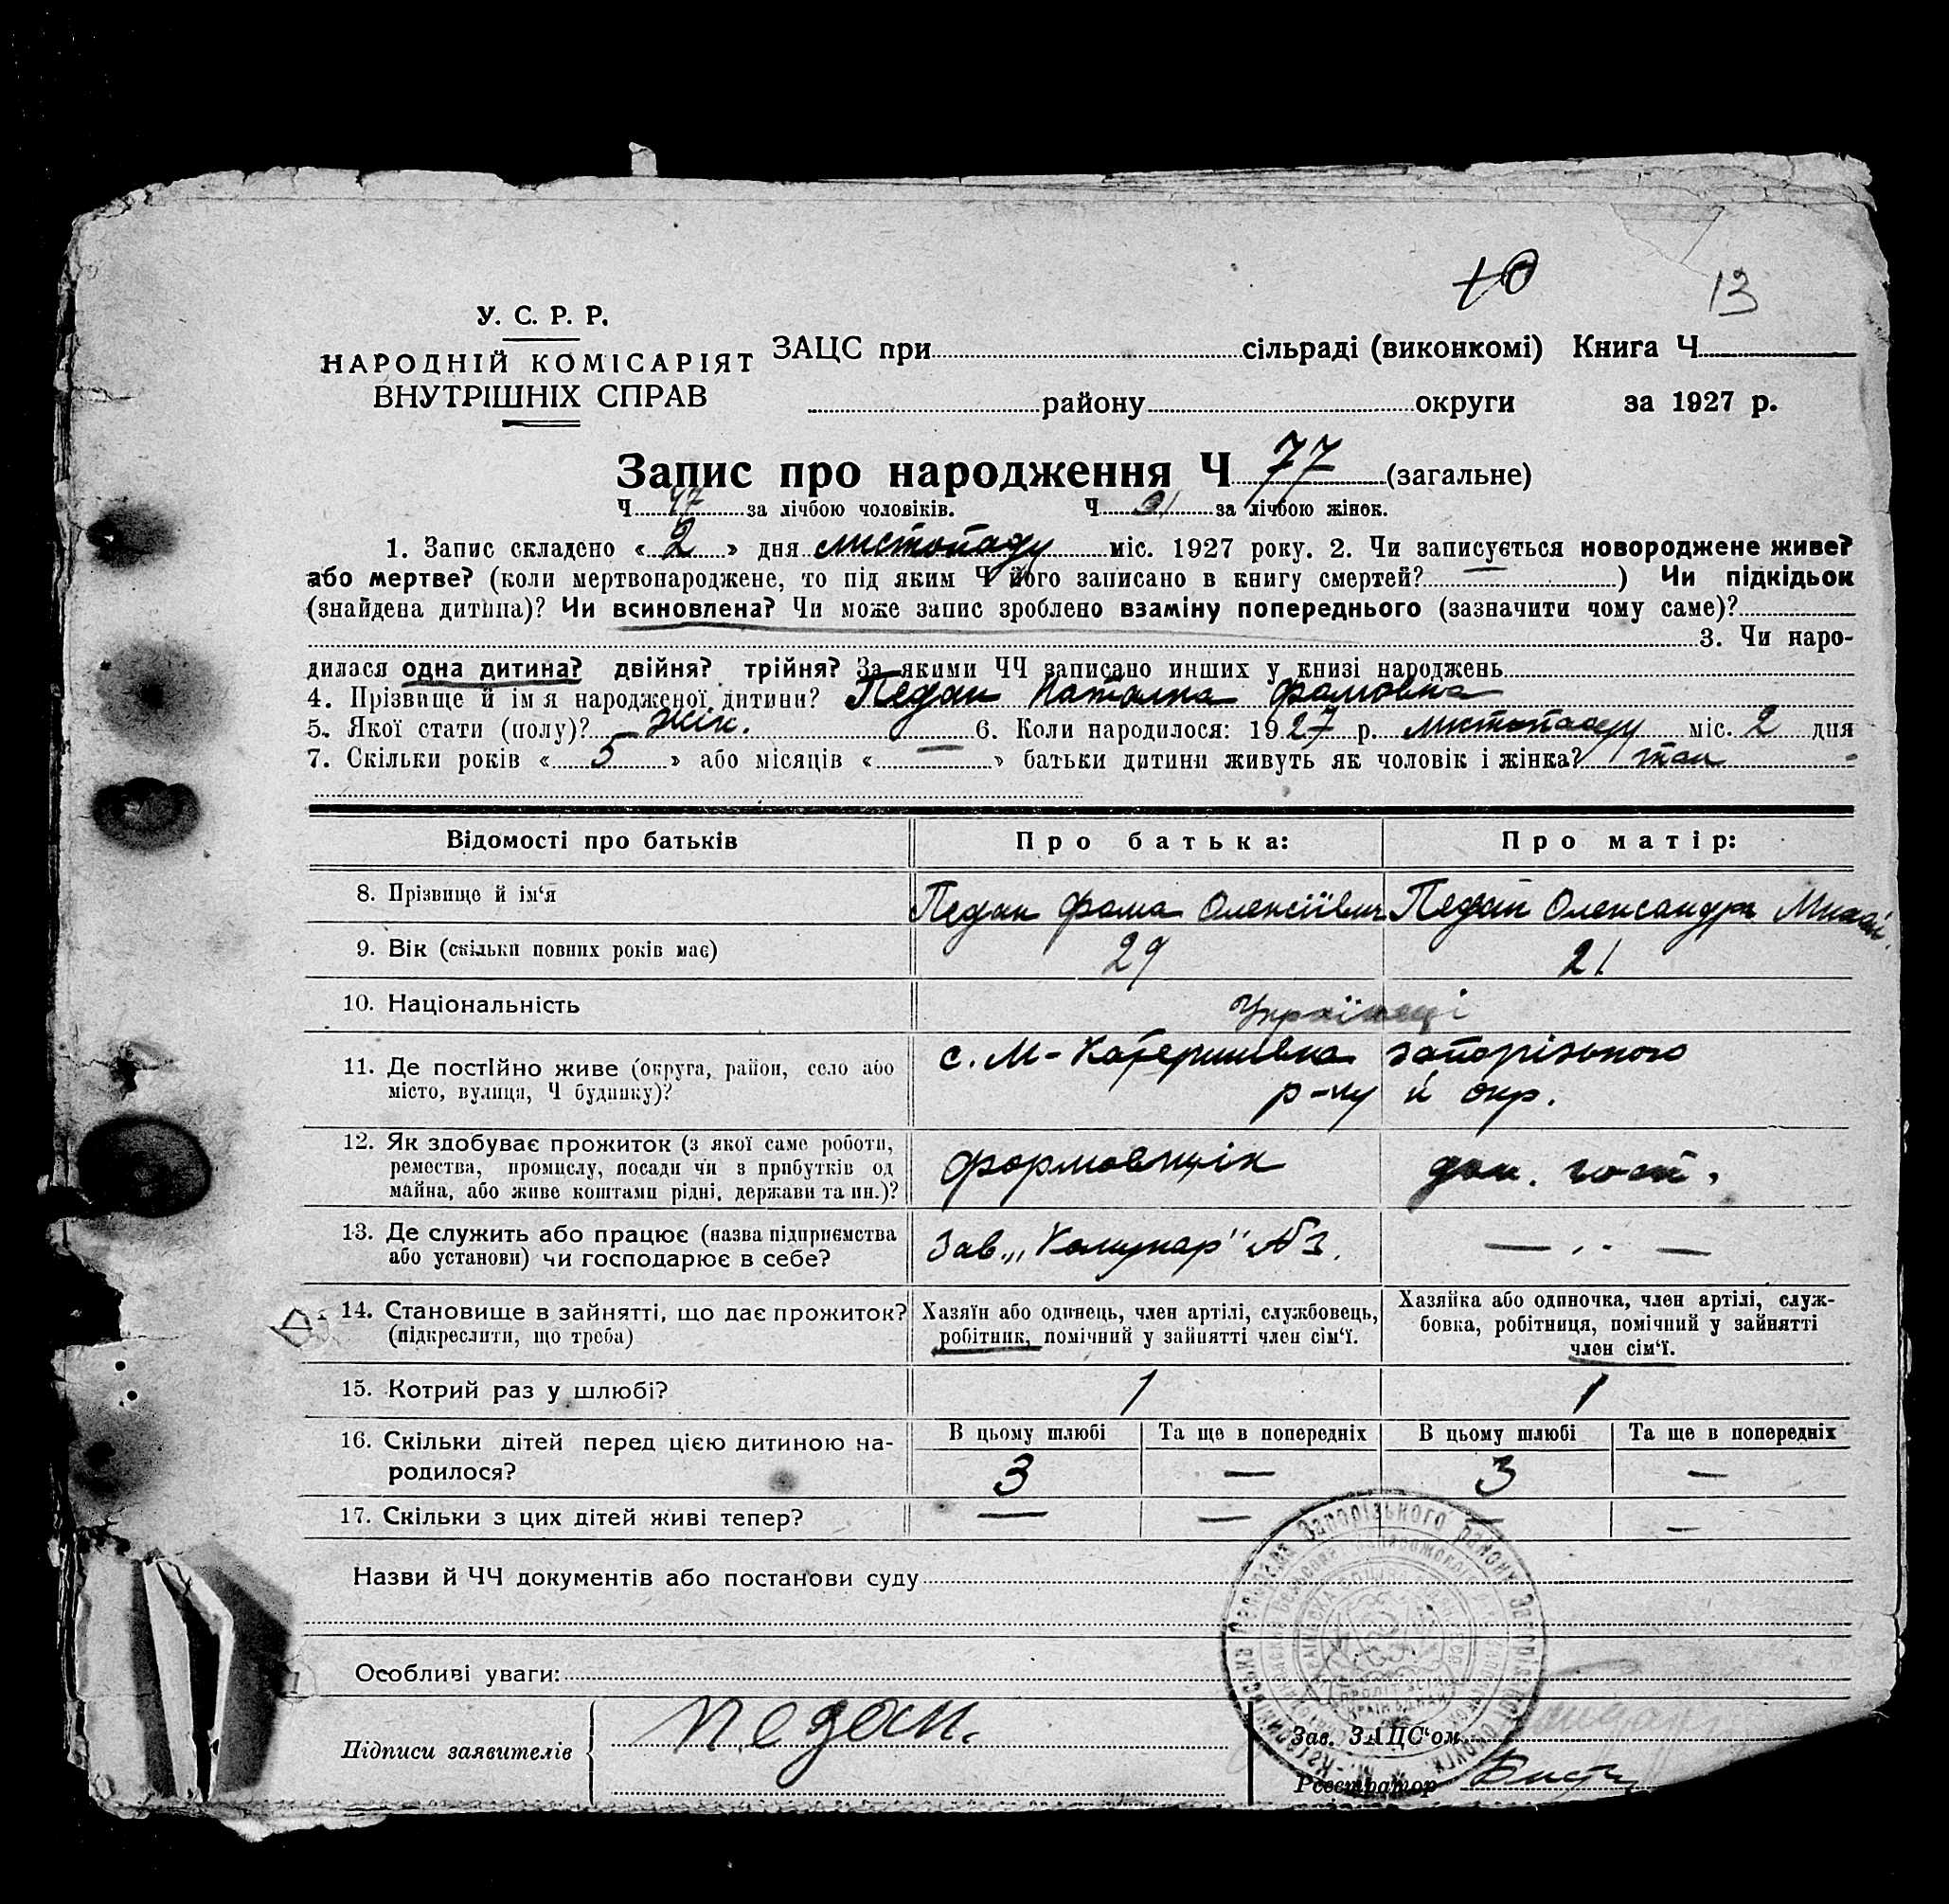 10 13
У. С. Р. Р.
НАРОДНІЙ КОМІСАРІЯТ
ВНУТРІШНІХ СПРАВ
ЗАЦС при сільраді (виконкомі) Книга Ч
району округи за 1927 р.
Запис про народження Ч 77 (загальне)
Ч 47 за лічбою чоловіків. Ч 31 за лічбою жінок.
1. Запис складено « 2 » дня листопаду міс. 1927 року. 2. Чи записується новороджене живе?
або мертве? (коли мертвонароджене, то під яким Ч його записано в книгу смертей? ) Чи підкідьок
(знайдена дитина)? Чи всиновлена? Чи може запис зроблено взаміну попереднього (зазначити чому саме)?
3. Чи наро-
дилася одна дитина? двійня? трійня? За якими ЧЧ записано инших у книзі народжень
4. Прізвище й ім'я народженої дитини? Педан Наталка Фомовна
5. Якої стати (полу)? жін. 6. Коли народилося: 1927 р. листопаду міс. 2 дня
7. Скільки років « 5 » або місяців « — » батьки дитини живуть як чоловік і жінка? так
Відомості про батьків Про батька: Про матір:
8. Прізвище й ім‘я Педан Фома Олексіївич Педан Олександра Михай.
9. Вік (скільки повних років має) 29 21
10. Національність Українці
11. Де постійно живе (округа, район, село або
місто, вулиця, Ч будинку)?
с. М-Катеринівка запорізького
р-ну й окр.
12. Як здобуває прожиток (з якої саме роботи,
ремества, промислу, посади чи з прибутків од
майна, або живе коштами рідні, держави та ин.)?
формовщік дом. госп.
13. Де служить або працює (назва підприємства
або установи) чи господарює в себе?
Зав. „Комунар" №3. — „ —
14. Становище в зайнятті, що дає прожиток?
(підкреслити, що треба)
Хазяїн або одинець, член артілі, службовець,
робітник, помічний у зайнятті член сім‘ї.
Хазяйка або одиночка, член артілі, служ-
бовка, робітниця, помічний у зайнятті
член сім‘ї.
15. Котрий раз у шлюбі? 1 1
16. Скільки дітей перед цією дитиною на-
родилося?
В цьому шлюбі Та ще в попередніх В цьому шлюбі Та ще в попередніх
3 — 3 —
17. Скільки з цих дітей живі тепер? — — — —
Назви й ЧЧ документів або постанови суду
Особливі уваги:
Підписи заявителів педан.
Зав. ЗАЦС‘ом
Реєстратор
Запорізького району Запорізької округи